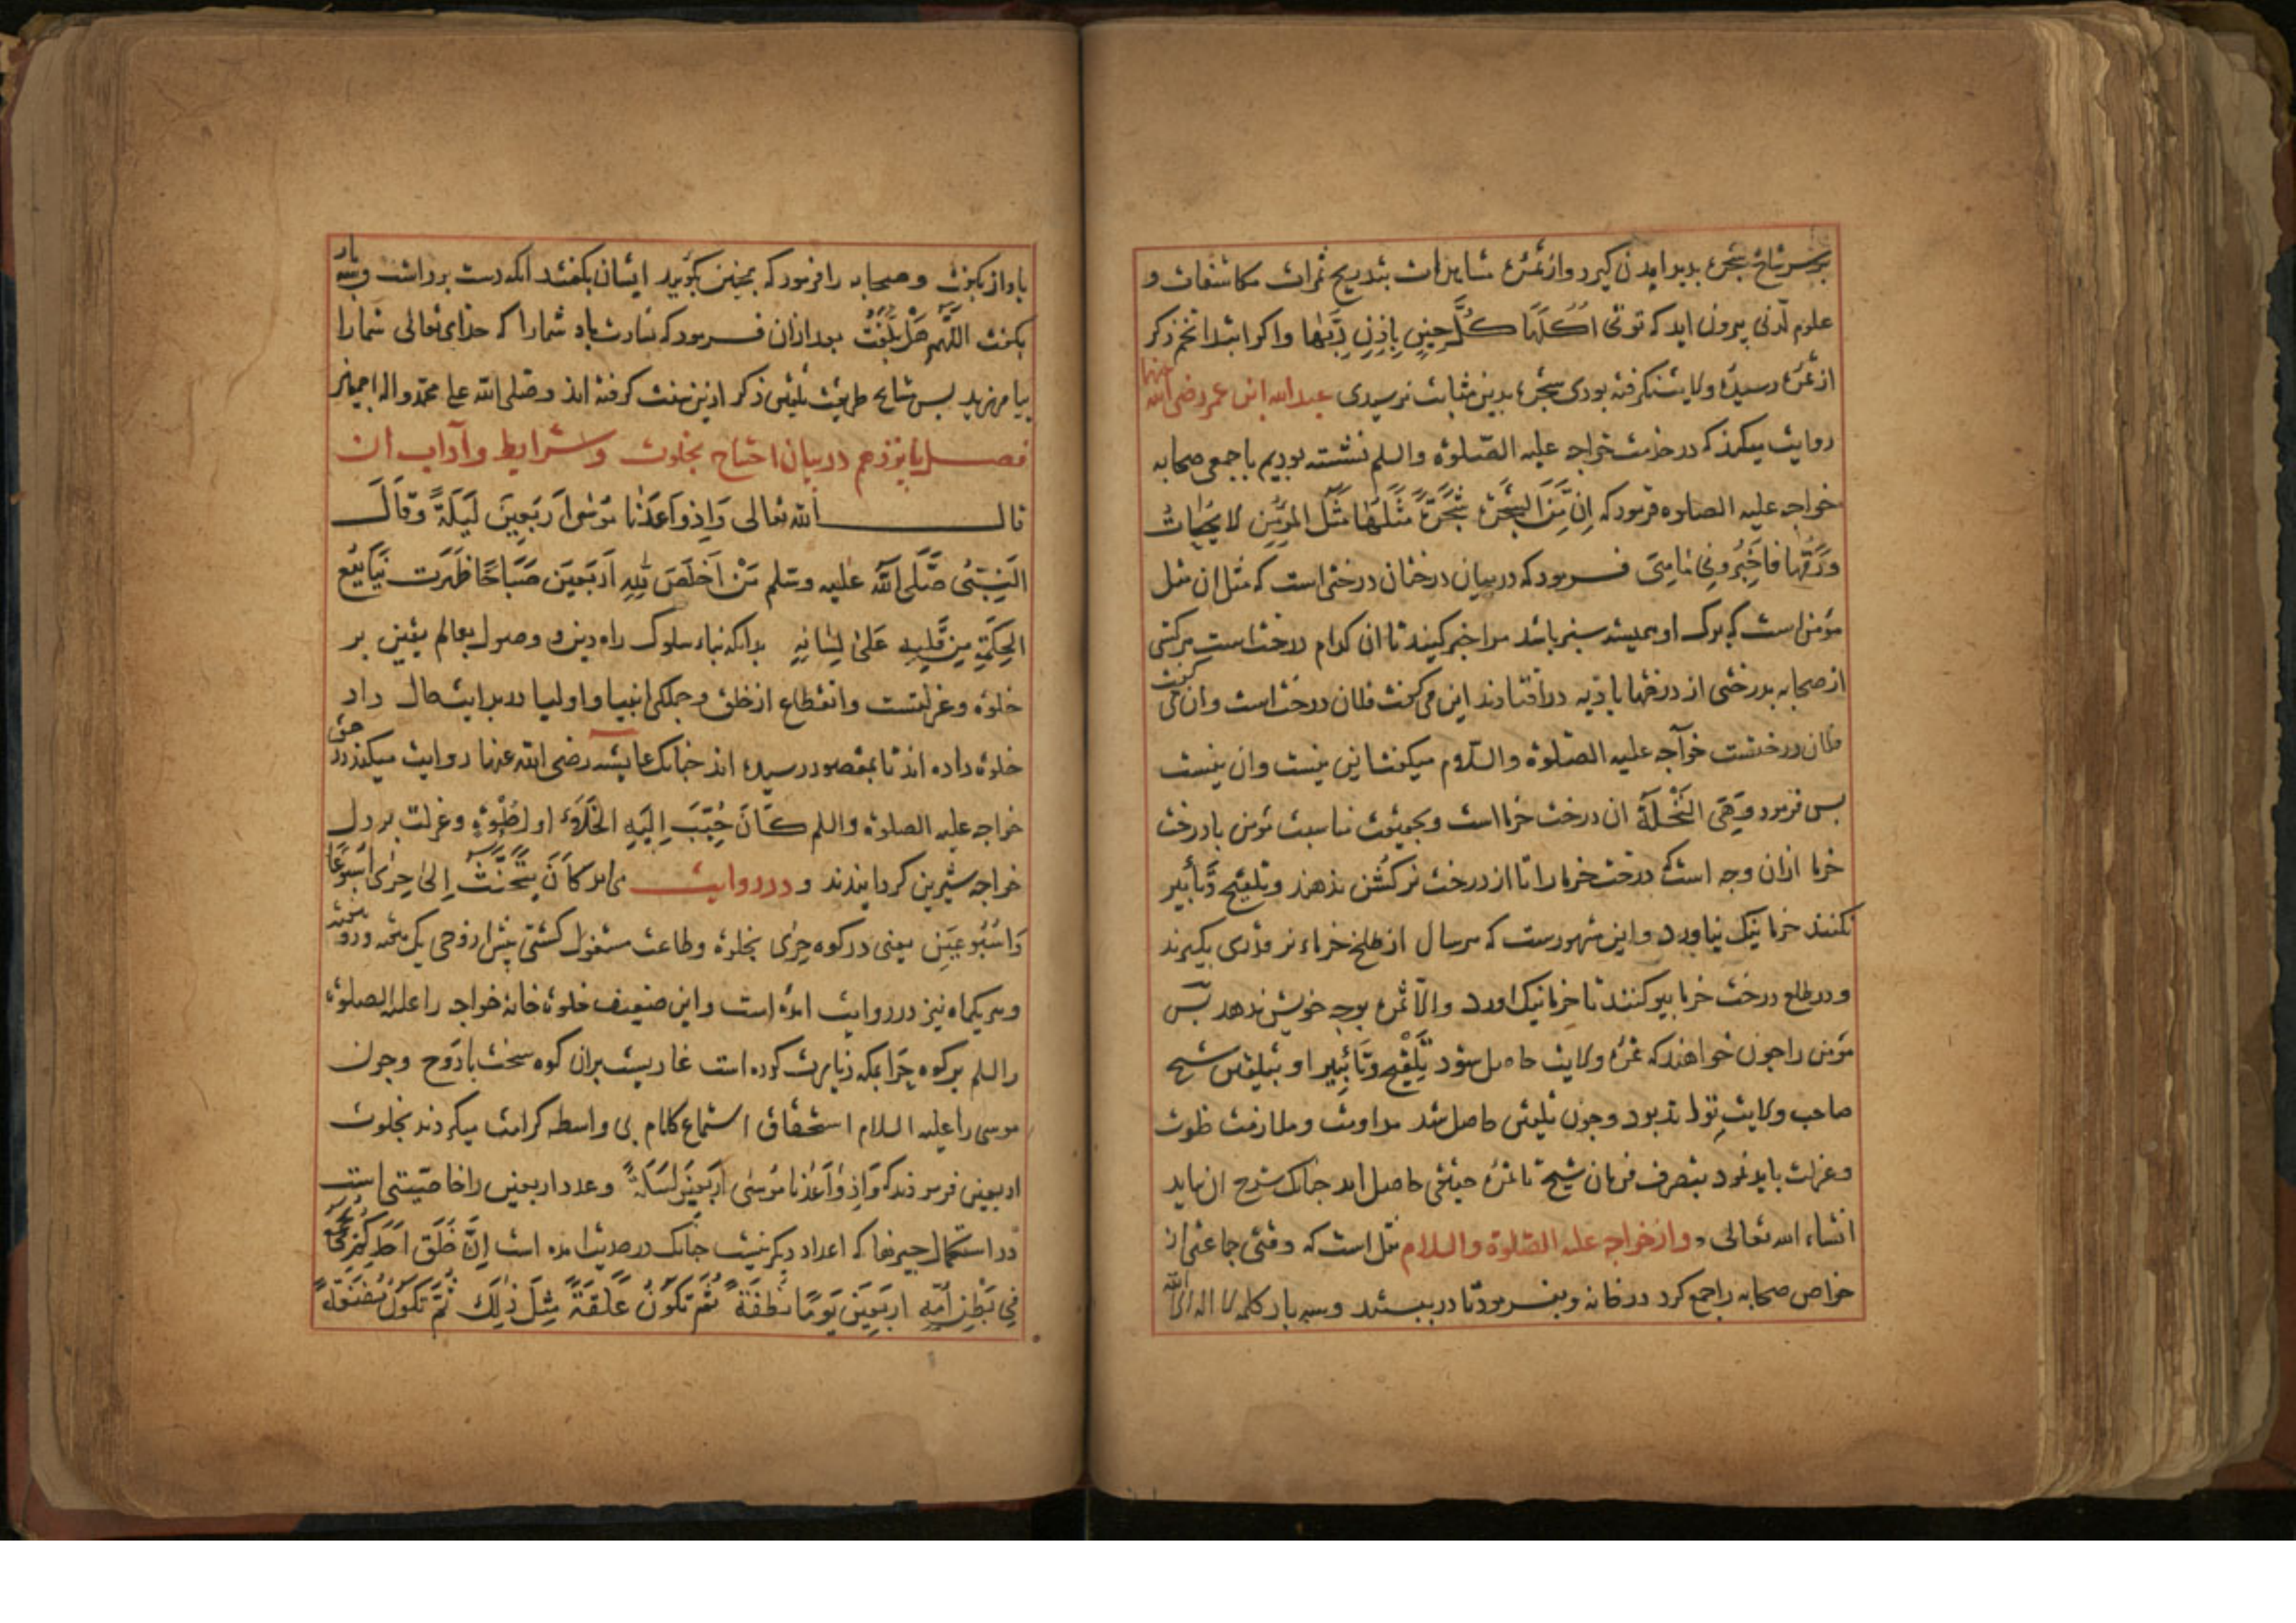 بر سر شاخ شجره بدید امدن کیرد و از ثمره مشاهدات بتدریج ثمرات مکاشفات و
علوم لدنی بیرون اید که تُوتی اُکُلَهَا کُلَّ حِینٍ بِاِذنِ رَبِّهَا و اکر ابتدا تخم ذکر
از ثمره رسیده ولایت نکرفته بودی شجره بدین مثابت نرسیدی عبد الله ابن عمر رضی الله عنهما
روایت میکند که در خدمت خواجه علیه الصّلوة والسلم نشسته بودیم با جمعی صحابه
خواجه علیه الصلوه فرمود که اِنَّ مِنَ الشَجَرَة شَجَرَةً مَثَلُهَا مَثَلُ المُؤمِن لا یُحَاتُ
وَرَقُهَا فَاَخبِرُونی مَا هِیَ فرمود که در میان درختان درختی است که مثل ان مثل
مؤمن است که برک او همیشه سبز باشد مرا خبر کنید تا ان کدام درخت است هر کسی
از صحابه بدرختی از درختها بادیه در افتادند این می کفت فلان درخت است وان می کفت
فلان درختست خوآجه علیه الصّلوة والسّلام میکفت این نیست وان نیست
بس فرمود وَهِیَ النَّخلَة ان درخت خرما است و بحقیقت مناسبت مؤمن با درخت
خرما ازان وجه است که درخت خرما را تا از درخت نر کُشن ندهند و تلقیح و تأبیر
نکنند خرما نیک نیاورد و این مشهورست که هر سال از طلح خرماء نر قدری بکیرند
و در طلع درخت خرما بیو کنند تا خرما نیک اورد والّا ثمره بوجه خویش ندهد بس
مؤمن را جون خواهند که ثمره ولایت حاصل شود تلقیح و تأبیر او بتلقین شیخ
صاحب ولایت تواند بود و جون تلقین حاصل شد مداومت و ملازمت خلوت
و عزلت باید نمود بتصرف فرمان شیخ تا ثمره حقیقی حاصل اید جنانک شرح ان بیاید
انشاء الله تعالی و از خواجه علیه الصّلوة والسلام نقل است که وقتی جماعتی از
خواص صحابه را جمع کرد در خانه و بفرمود تا در ببستند و سه بار کلمه لا اله الا الله
باواز بکفت و صحابه را فرمود که بجنین بکویید ایشان بکفتند انکه دست برداشت و سه بار
بکفت اللَّهُمَّ هَل بَلَّغتُ بعد ازان فرمود که بشارت باد شمارا که خدای تعالی شما را
بیامرزید بس مشایخ طریقت تلقین ذکر ازین سنت کرفته اند و صلی الله علی محمد واله اجمعین
فصل پانزدهم در بیان احتیاج بخلوت و شرایط و آداب ان
قال الله تعالی وَاِذ وَاعَدنَا مُوسٰی اَربَعِینَ لَیلَةً وَقَالَ
النَّبِیُّ صَلَّی اللَّهُ عَلیه وسَلم مَنْ اَخلَصَ لِلّٰهِ اَربَعِینَ صَبَاحًا ظَهَرَت یَنَابِیعُ
الحِکمَةِ مِن قَلبِهِ عَلیٰ لِسَانِهِ بدانکه بناء سلوک راه دین و وصول بعالم یقین بر
خلوة و عزلتست و انقطاع از خلق و جملکی انبیا و اولیا در بدایت حال داد
خلوة داده اند تا بمقصود رسیده اند جنانک عایشه رضی الله عنها روایت میکند در حق
خواجه علیه الصلوة والسلم کَانَ حُبِّبَ اِلَیهِ الخَلَاءُ اول خُلوة و عزلت بر دل
خواجه شیرین کردانیدند و در روایت می اید کَانَ یَتَحَنَّثُ اِلیٰ حِرٰی اُسبُوعًا
وَاُسبُوعَینِ یعنی در کوه حِرٰی بخلوة و طاعت مشغول کشتی پیش از وحی یک هفته و دو هفته
و یکماه نیز در روایت امده است و این ضعیف خلوة خانهٔ خواجه را علیه الصلوة
والسلم بر کوه حِرَا بمکه زیارت کرده است غاریست بران کوه سخت با روح و جون
موسی را علیه السلام استحقاق استماع کلام بی واسطه کرامت میکردند بخلوت
اربعین فرموذند که وَاِذ وَاعَدنَا مُوسٰی اَربَعِینَ لَیلَةً و عدد اربعین را خاصیتی است
در استکمال جیزها که اعداد دیکر نیست جنانک در حدیث امده است اِنَّ خَلقَ اَحَدِکُم یُجمَعُ
فِی بَطنِ اُمِّهِ اَربَعِینَ یَومًا نُطفَةً ثُمَّ تَکُونُ عَلَقَةً مِثلَ ذٰلِکَ ثُمَّ تَکُونُ مُضغَةً